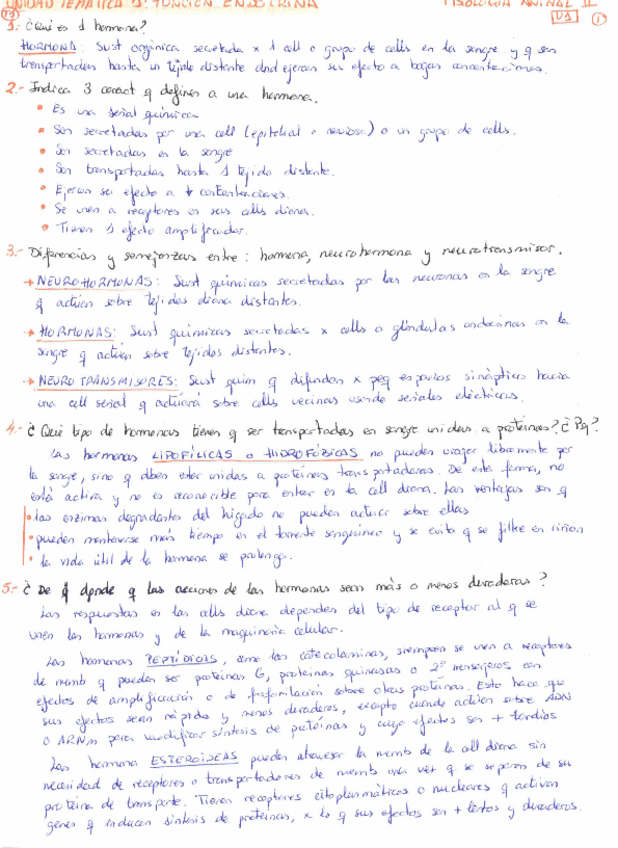 UNIDAD TEMÁTICA 1: FUNCIÓN ENDOCRINA FISIOLOGÍA ANIMAL II
U1 1
1.- ¿Qué es 1 hormona?
HORMONA: Sust orgánica secretada x 1 cell o grupo de cells en la sangre y q son
transportadas hasta un tejido distante dnd ejercen su efecto a bajas concentraciones.
2.- Indica 3 caract q definen a una hormona.
• Es una señal química
• Son secretadas por una cell (epitelial o nerviosa) o un grupo de cells.
• Son secretadas en la sangre
• Son transportadas hasta 1 tejido distante.
• Ejercen su efecto a ↓ concentraciones.
• Se unen a receptores en sus cells diana.
• Tienen 1 efecto amplificador.
3.- Diferencias y semejanzas entre: hormona, neurohormona y neurotransmisor.
→ NEUROHORMONAS: Sust químicas secretadas por las neuronas en la sangre
q actúan sobre tejidos diana distantes.
→ HORMONAS: Sust químicas secretadas x cells o glándulas endocrinas en la
sangre q actúan sobre tejidos distantes.
→ NEUROTRANSMISORES: Sust quim q difunden x peq espacios sinápticos hacia
una cell señal q actuará sobre cells vecinas usando señales eléctricas.
4.- ¿Qué tipo de hormonas tienen q ser transportadas en sangre unidas a proteínas? ¿Pq?
Las hormonas LIPOFÍLICAS o HIDROFÓBICAS no pueden viajar libremente por
la sangre, sino q dben estar unidas a proteínas transportadoras. De esta forma, no
está activa y no es reconocible para entrar en la cell diana. Las ventajas son q
• las enzimas degradantes del hígado no pueden actuar sobre ellas
• pueden mantenerse más tiempo en el torrente sanguíneo y se evita q se filtre en riñón
• la vida útil de la hormona se prolonga.
5.- ¿De q dpnde q las acciones de las hormonas sean más o menos duraderas?
Las respuestas en las cells diana dependen del tipo de receptor al q se
unen las hormonas y de la maquinaria celular.
Las hormonas PEPTÍDICAS, como las catecolaminas, siempre se unen a receptores
de memb q pueden ser proteínas G, proteínas quinasas o 2º mensajeros con
efectos de amplificación o de fosforilación sobre otras proteínas. Esto hace que
sus efectos sean rápidos y menos duraderos, excepto cuando actúen sobre ADN
o ARNm para modificar síntesis de proteínas y cuyo efectos son + tardíos
Las hormona ESTEROIDEAS pueden atravesar la memb de la cell diana sin
necesidad de receptores o transportadores de memb una vez q se separan de su
proteína de transporte. Tienen receptores citoplasmáticos o nucleares q activan
genes q inducen síntesis de proteínas, x lo q sus efectos son + lentos y duraderos.